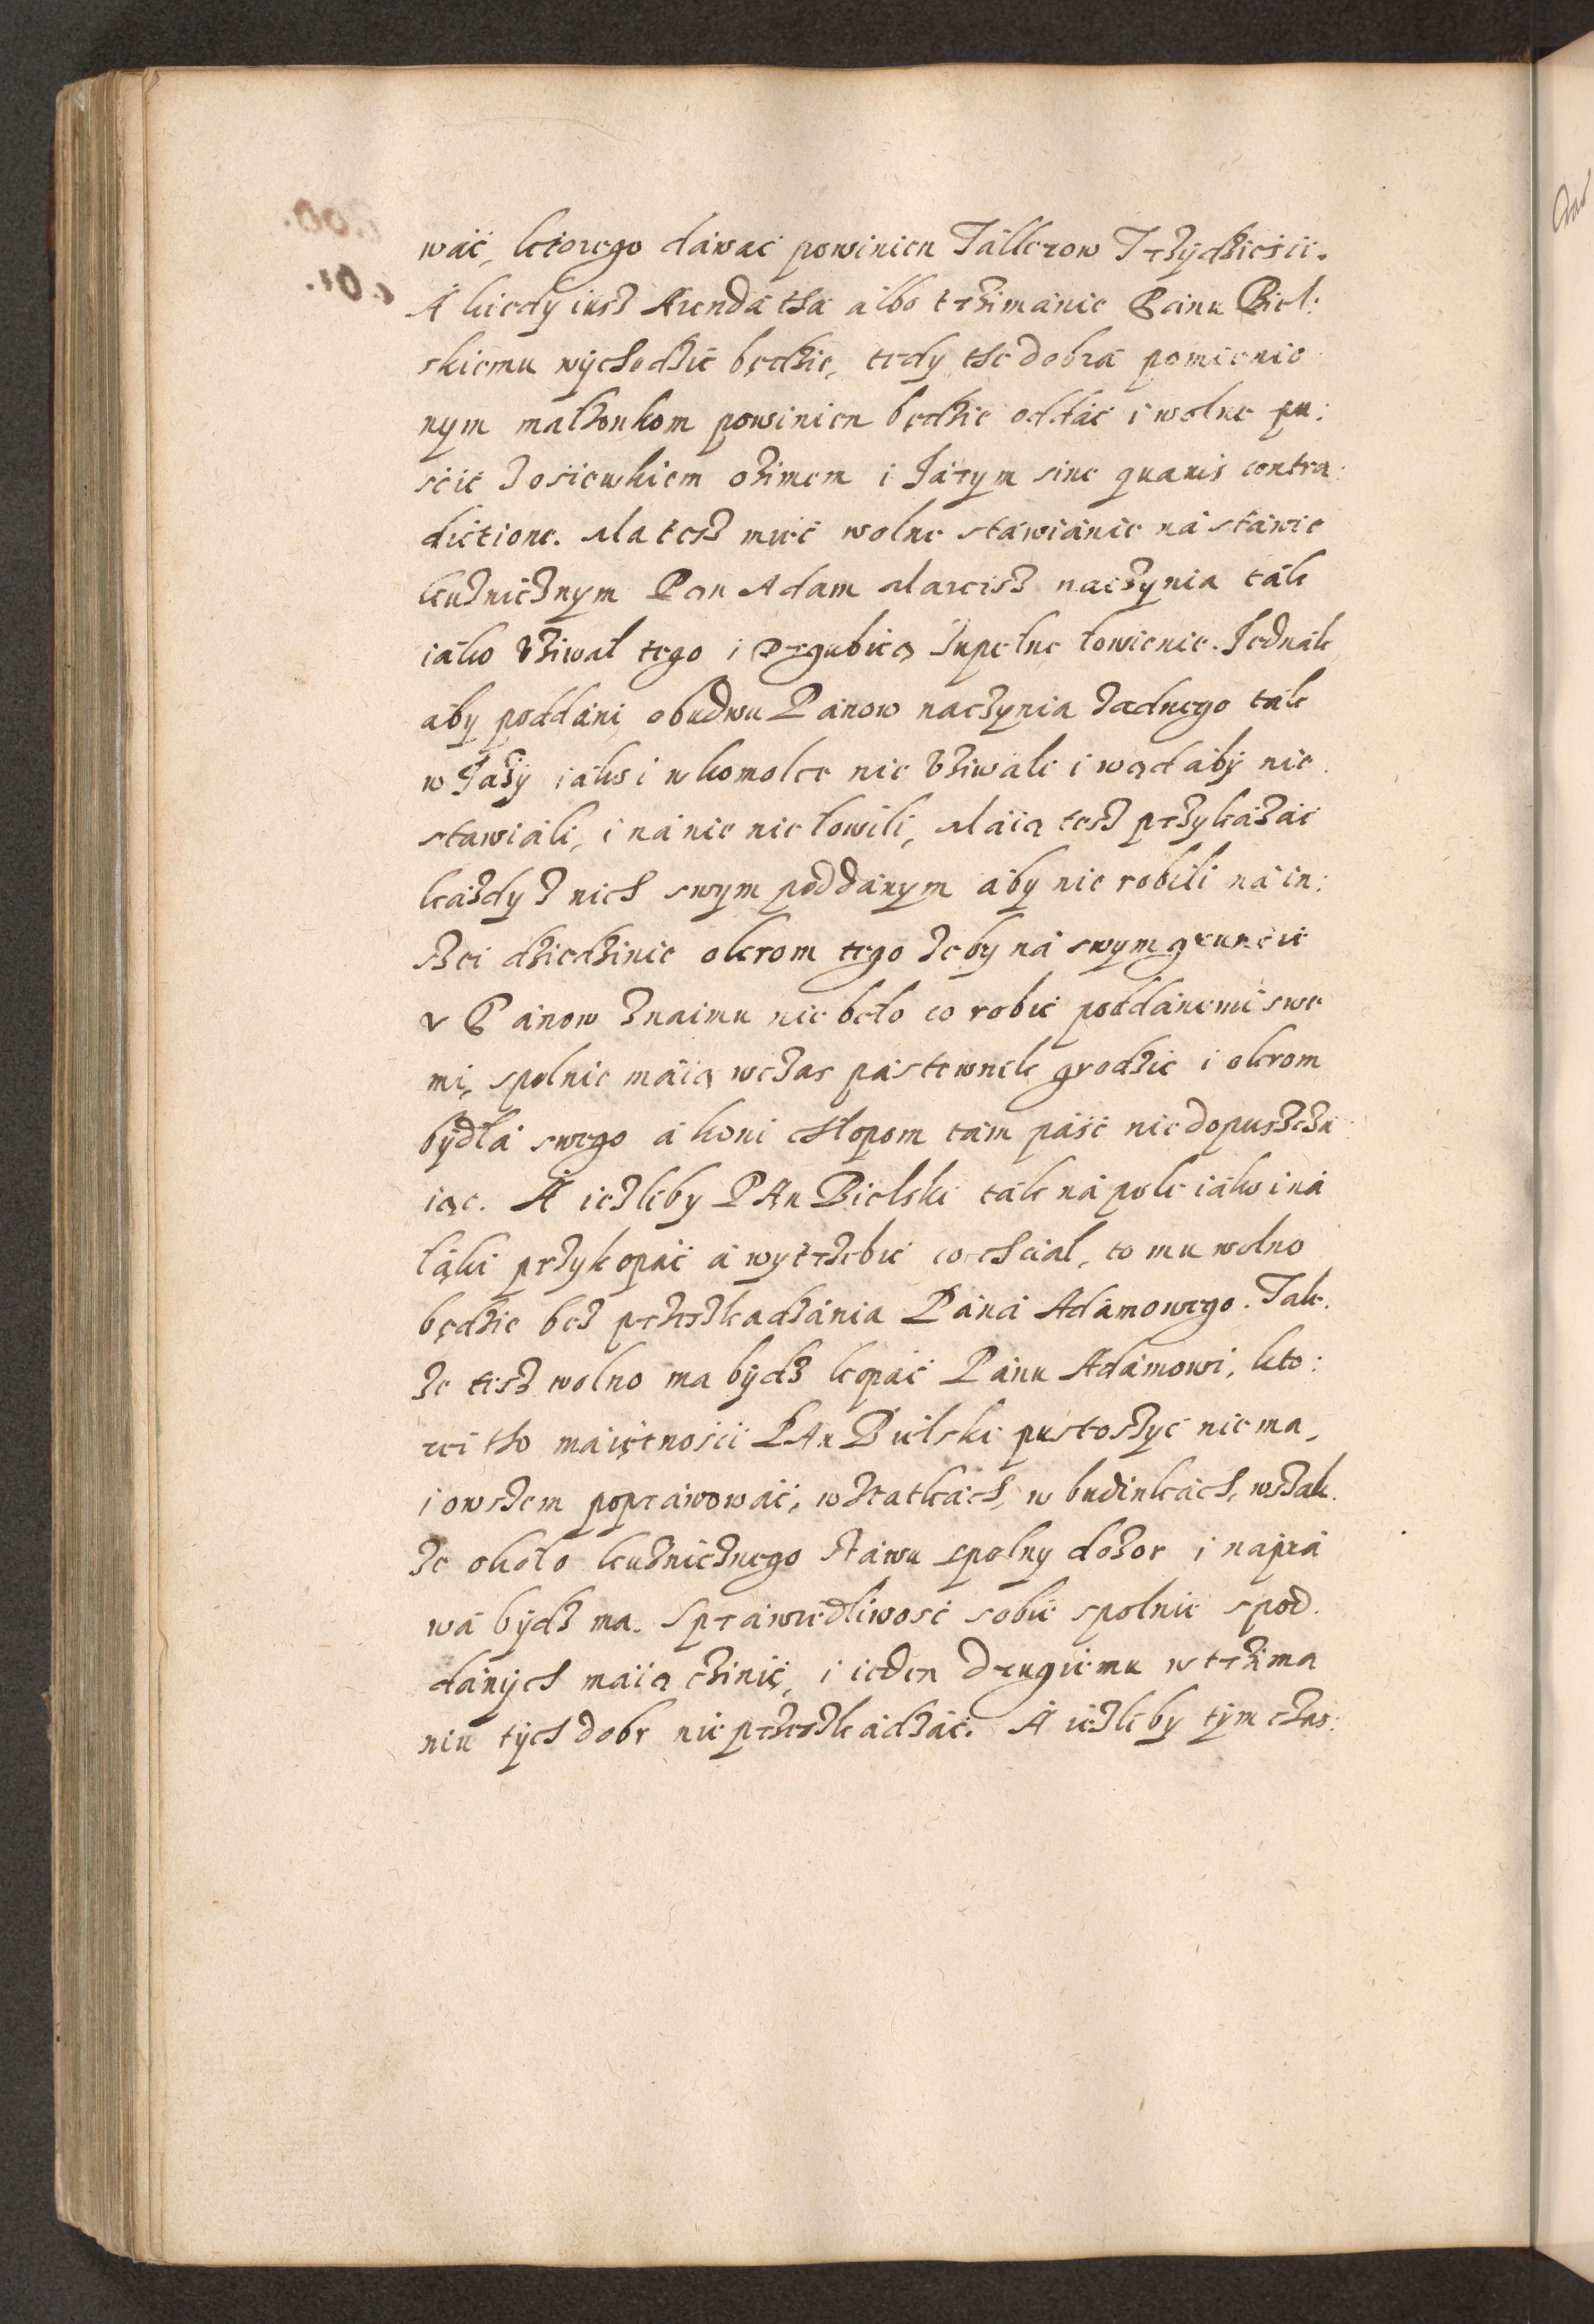 wáć, ktorego dáwáć powinien Tállerow Trżydżieśći.
A kiedy iusz Arenda tha álbo trżimánie Pánu Biel:
skiemu wychodżić będżie, tedy the dobrá pomienio
nym małżonkom powinien będżie oddáć i wolne pu:
śćić z osiewkiem ożimem i Jarym sine quauis contra:
dictione. Ma tesz mieć wolne stáwiánie ná stáwie
kużnicznym Pan Adam Marcisz naczynia ták
iáko vżiwał tego i Drgubicą zupełne łowienie. Jednák
áby poddáni obudwu Pánow naczynia żadnego ták
w Jazy iáko i w komolce nie vżiwále i wąd áby nie
stawiáli, i ná nie nie łowili, Máią tesz przykázáć
káżdy z nich swym poddánym áby nie robili ná in:
szei dżiedżinie okrom tego żeby ná swym grunćie
v Pánow znaimu nie beło co robić poddánemi swe
mi, spolnie máią wczas pástewnek grodżić i okrom
bydłá swego á koni chłopom tám páść nie dopuszczá
iąc. A ieżleby PAn Bielski ták ná pole iáko i ná
łąki przykopáć á wytrzebić co chciał, to mu wolno
będżie bez przeszkadzánia Páná Adámowego. Tak.
że tesz wolno ma bydż kopáć Pánu Adámowi, kto:
rei tho máiętnośći PAn Bielski pustoszyć nie ma,
i owszem popráwowáć, w státkách, w budinkách, wszak.
że około kużnicznego stáwu spolny dozor i naprá
wá bydż ma. Spráwiedliwość sobie spolnie s pod.
dánych máią czinić, i ieden drugiemu w trżima
niu tych dobr nie przeszkádzáć. A ieżleby tym czás: